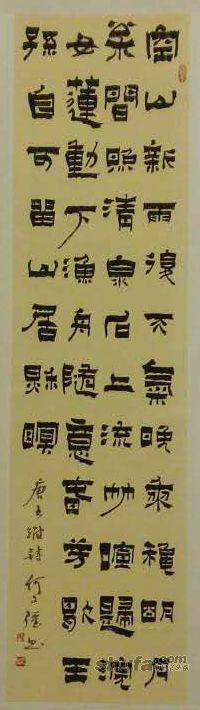 空山新雨後天氣晚來秋明月
松間照清泉石上流竹喧歸浣
女蓮動下漁舟隨意春芳歇王
孫自可留山居秋暝
唐王維詩 何